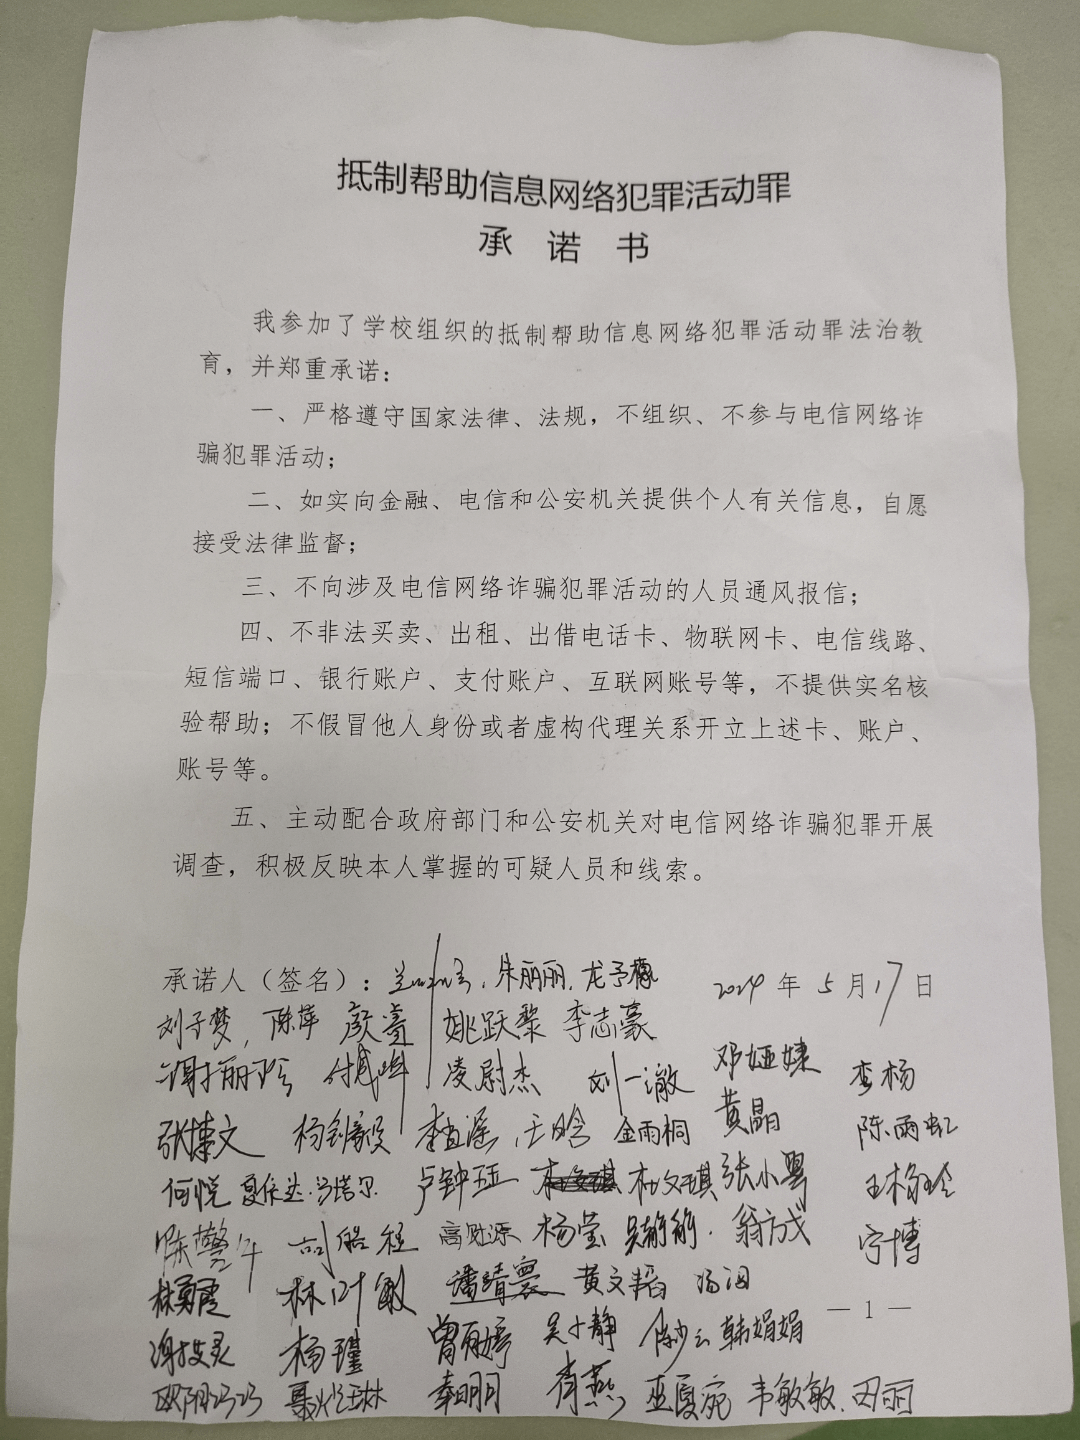 抵制帮助信息网络犯罪活动罪
承诺书
我参加了学校组织的抵制帮助信息网络犯罪活动罪法治教
育，并郑重承诺：
一、严格遵守国家法律、法规，不组织、不参与电信网络诈
骗犯罪活动；
二、如实向金融、电信和公安机关提供个人有关信息，自愿
接受法律监督；
三、不向涉及电信网络诈骗犯罪活动的人员通风报信；
四、不非法买卖、出租、出借电话卡、物联网卡、电信线路、
短信端口、银行账户、支付账户、互联网账号等，不提供实名核
验帮助；不假冒他人身份或者虚构代理关系开立上述卡、账户、
账号等。
五、主动配合政府部门和公安机关对电信网络诈骗犯罪开展
调查，积极反映本人掌握的可疑人员和线索。
承诺人（签名）：朱丽丽, 龙予樽 2024年5月17日
刘子梦, 陈萍 颜睿 姚跃黎 李志豪
谢丽珍 凌尉杰 刘一澈 邓娅婕 李杨
张博文 杨钊毅 王晗 金雨桐 黄晶 陈雨虹
何悦 夏依达·乌塔尔 卢钟珏 杜文琪 张小粤 王杨玲
高贤源 杨莹 吴静静 翁方戎 宁博
林叶敏 黄文韬 杨汨
— 1 —
杨瑾 吴小静 陈少云 韩娟娟
秦明月 肖燕 巫夏宛 韦敏敏 田丽